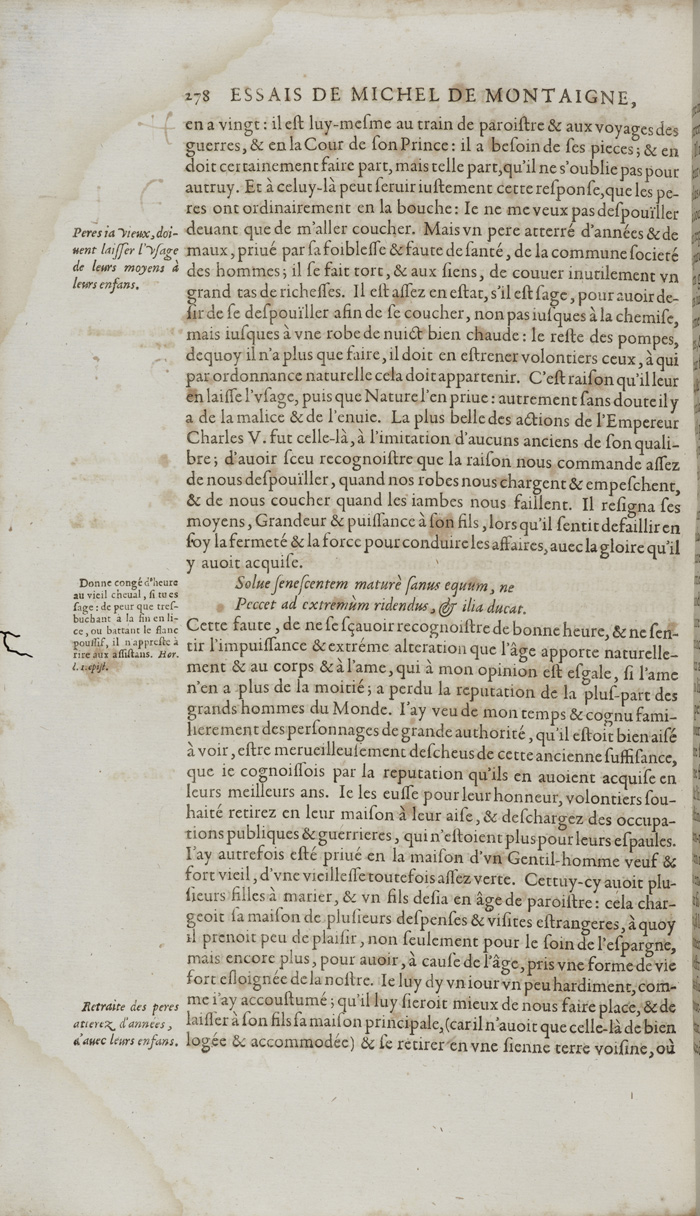 278 ESSAIS DE MICHEL DE MONTAIGNE,
en a vingt : il eſt luy-meſme au train de paroiſtre & aux voyages des
guerres, & en la Cour de ſon Prince : il a beſoin de ſes pieces ; & en
doit certainement faire part, mais telle part, qu'il ne s'oublie pas pour
autruy. Et à celuy-là peut ſeruir iuſtement cette reſponſe, que les pe-
res ont ordinairement en la bouche : Ie ne me veux pas deſpoüiller
deuant que de m'aller coucher. Mais vn pere atterré d'années & de
maux, priué par ſa foibleſſe & faute de ſanté, de la commune ſocieté
des hommes ; il ſe fait tort, & aux ſiens, de couuer inutilement vn
grand tas de richeſſes. Il eſt aſſez en eſtat, s'il eſt ſage, pour auoir de-
ſir de ſe deſpoüiller afin de ſe coucher, non pas iuſques à la chemiſe,
mais iuſques à vne robe de nuict bien chaude : le reſte des pompes,
dequoy il n'a plus que faire, il doit en eſtrener volontiers ceux, à qui
par ordonnance naturelle cela doit appartenir. C'eſt raiſon qu'il leur
en laiſſe l'vſage, puis que Nature l'en priue : autrement ſans doute il y
a de la malice & de l'enuie. La plus belle des actions de l'Empereur
Charles V. fut celle-là, à l'imitation d'aucuns anciens de ſon quali-
bre ; d'auoir ſceu recognoiſtre que la raiſon nous commande aſſez
de nous deſpoüiller, quand nos robes nous chargent & empeſchent,
& de nous coucher quand les iambes nous faillent. Il reſigna ſes
moyens, Grandeur & puiſſance à ſon fils, lors qu'il ſentit defaillir en
ſoy la fermeté & la force pour conduire les affaires, auec la gloire qu'il
y auoit acquiſe.
Solue ſeneſcentem maturè ſanus equum, ne
Peccet ad extremùm ridendus, & ilia ducat.
Cette faute, de ne ſe ſçauoir recognoiſtre de bonne heure, & ne ſen-
tir l'impuiſſance & extréme alteration que l'âge apporte naturelle-
ment & au corps & à l'ame, qui à mon opinion eſt eſgale, ſi l'ame
n'en a plus de la moitié ; a perdu la reputation de la pluſ-part des
grands hommes du Monde. I'ay veu de mon temps & cognu fami-
lierement des perſonnages de grande authorité, qu'il eſtoit bien aiſé
à voir, eſtre merueilleuſement deſcheus de cette ancienne ſuffiſance,
que ie cognoiſſois par la reputation qu'ils en auoient acquiſe en
leurs meilleurs ans. Ie les euſſe pour leur honneur, volontiers ſou-
haité retirez en leur maiſon à leur aiſe, & deſchargez des occupa-
tions publiques & guerrieres, qui n'eſtoient plus pour leurs eſpaules.
I'ay autrefois eſté priué en la maiſon d'vn Gentil-homme veuf &
fort vieil, d'vne vieilleſſe toutefois aſſez verte. Cettuy-cy auoit plu-
ſieurs filles à marier, & vn fils deſia en âge de paroiſtre : cela char-
geoit ſa maiſon de pluſieurs deſpenſes & viſites eſtrangeres, à quoy
il prenoit peu de plaiſir, non ſeulement pour le ſoin de l'eſpargne,
mais encore plus, pour auoir, à cauſe de l'âge, pris vne forme de vie
fort eſloignée de la noſtre. Ie luy dy vn iour vn peu hardiment, com-
me i'ay accouſtumé ; qu'il luy ſieroit mieux de nous faire place, & de
laiſſer à ſon fils ſa maiſon principale, (car il n'auoit que celle-là de bien
logée & accommodée) & ſe retirer en vne ſienne terre voiſine, où
Peres ia vieux, doi-
uent laiſſer l'vſage
de leurs moyens à
leurs enfans.
Donne congé d'heure
au vieil cheual, ſi tu es
ſage : de peur que treſ-
buchant à la fin en li-
ce, ou battant le flanc
pouſſif, il n'appreſte à
rire aux aſſiſtans. Hor.
l. 1. epiſt.
Retraite des peres
atterez d'années,
d'auec leurs enfans.